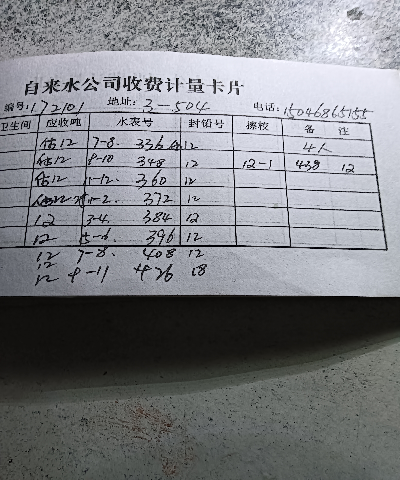 自来水公司收费计量卡片
编号: 172101 地址: 3-504 电话: 15046865155
卫生间 应收吨 水表号 封铅号 擦校 备 注
估12 7-8. 336 12 4人
估12 9-10 348 12 12-1 438 12
估12 11-12. 360 12
估12 1-2. 372 12
12 3-4. 384 12
12 5-6. 396 12
12 7-8. 408 12
12
12 9-11 426 18